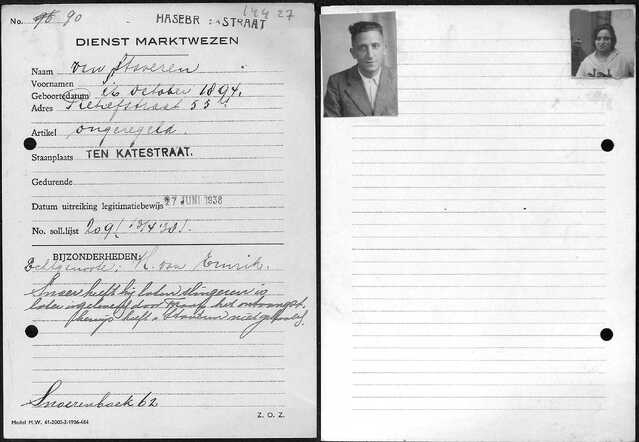 No. 96 90
HASEBR STRAAT
144 27
DIENST MARKTWEZEN
Naam van Staveren
Voornamen
Geboortedatum 16 october 1894.
Adres Retiefstraat 55
Artikel ongeregeld.
Staanplaats TEN KATESTRAAT.
Gedurende
Datum uitreiking legitimatiebewijs 27 JUNI 1938
No. soll.lijst 209/
BIJZONDERHEDEN:
Echtgenoote: K. van Emrik.
heeft hij laten slingeren is
later door het
heeft v Staveren niet
Snoerenboek 62
Model M.W. 61-2000-2-1936-484
Z. O. Z.